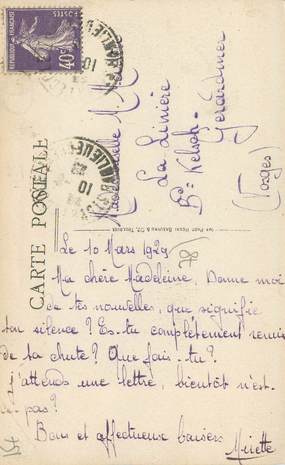 POSTES
REPUBLIQUE FRANÇAISE
40c
CARTE POSTALE
Mademoiselle M. M.
La Linière
Bd Kelsch
Gérardmer
(Vosges)
Le 10 Mars 1929
Ma chère Madeleine, Donne moi
de tes nouvelles, que signifie
ton silence ? Es-tu complètement remise
de ta chute ? Que fais-tu ?
J'attends une lettre, bientôt n'est-
pas ?
Bons et affectueux baisers
Mirette